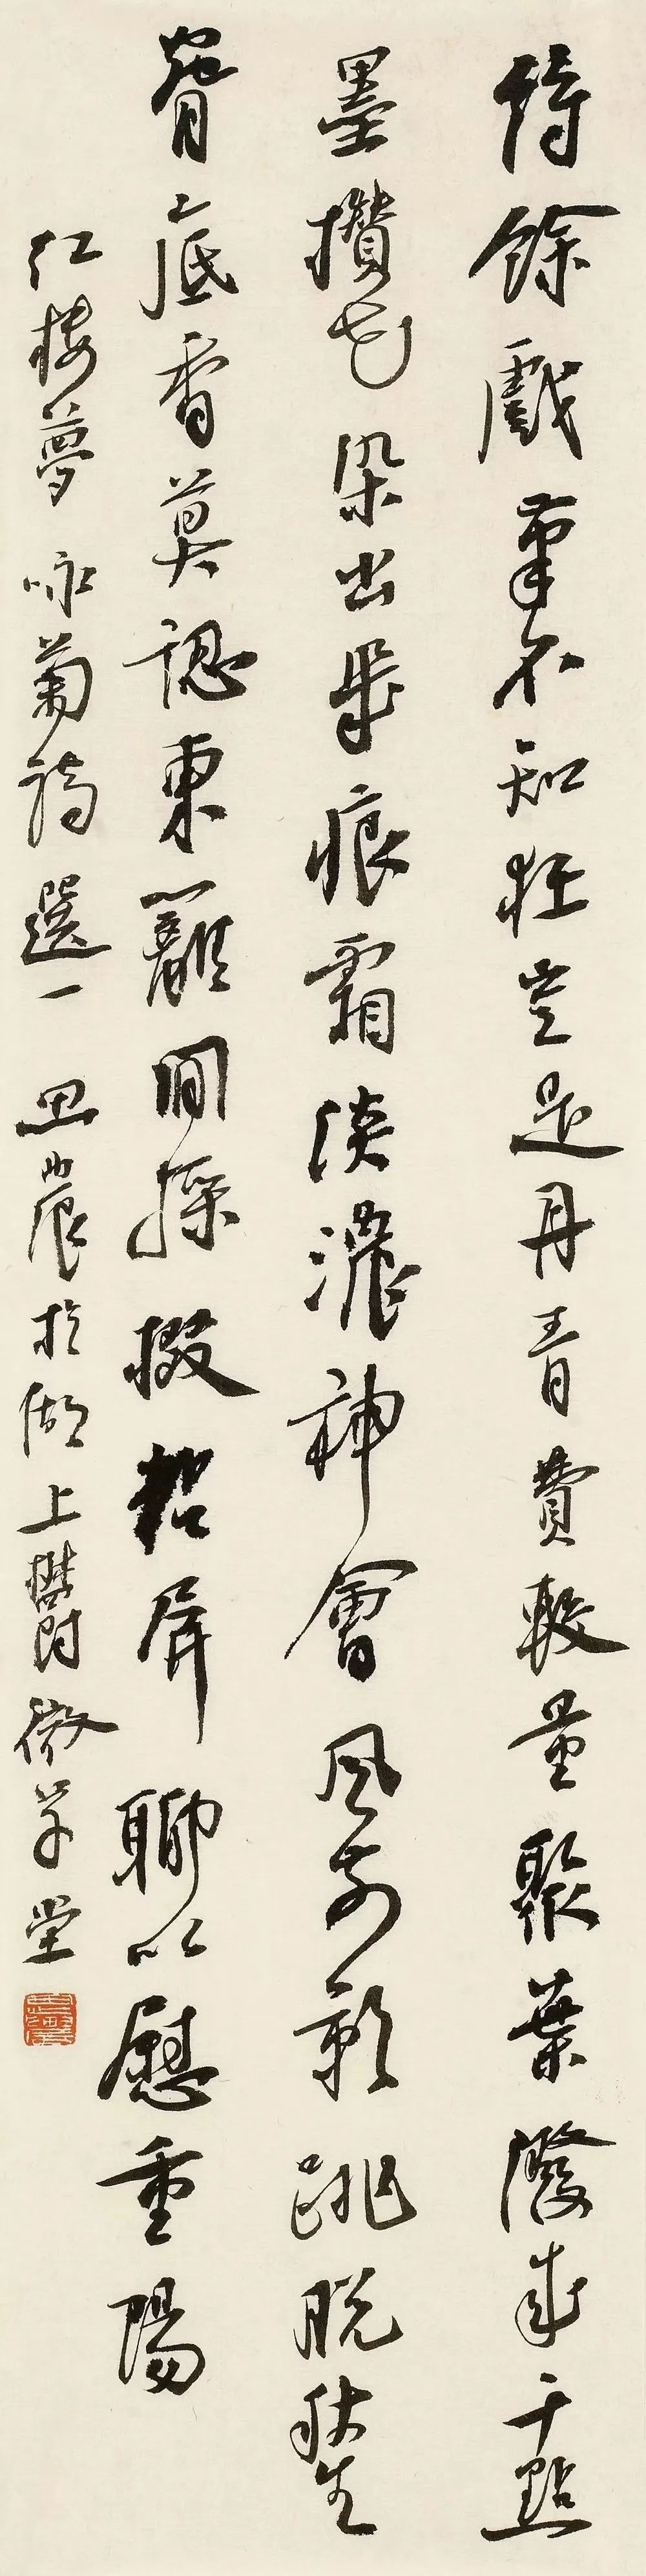 詩餘戲筆不知狂豈是丹青費較量聚葉潑成千點
墨攢花染出幾痕霜淡濃神會風前影跳脫秋生
腕底香莫認東籬閒採掇粘屏聊以慰重陽
紅樓夢咏菊詩選一 思農於湖上攀微草堂